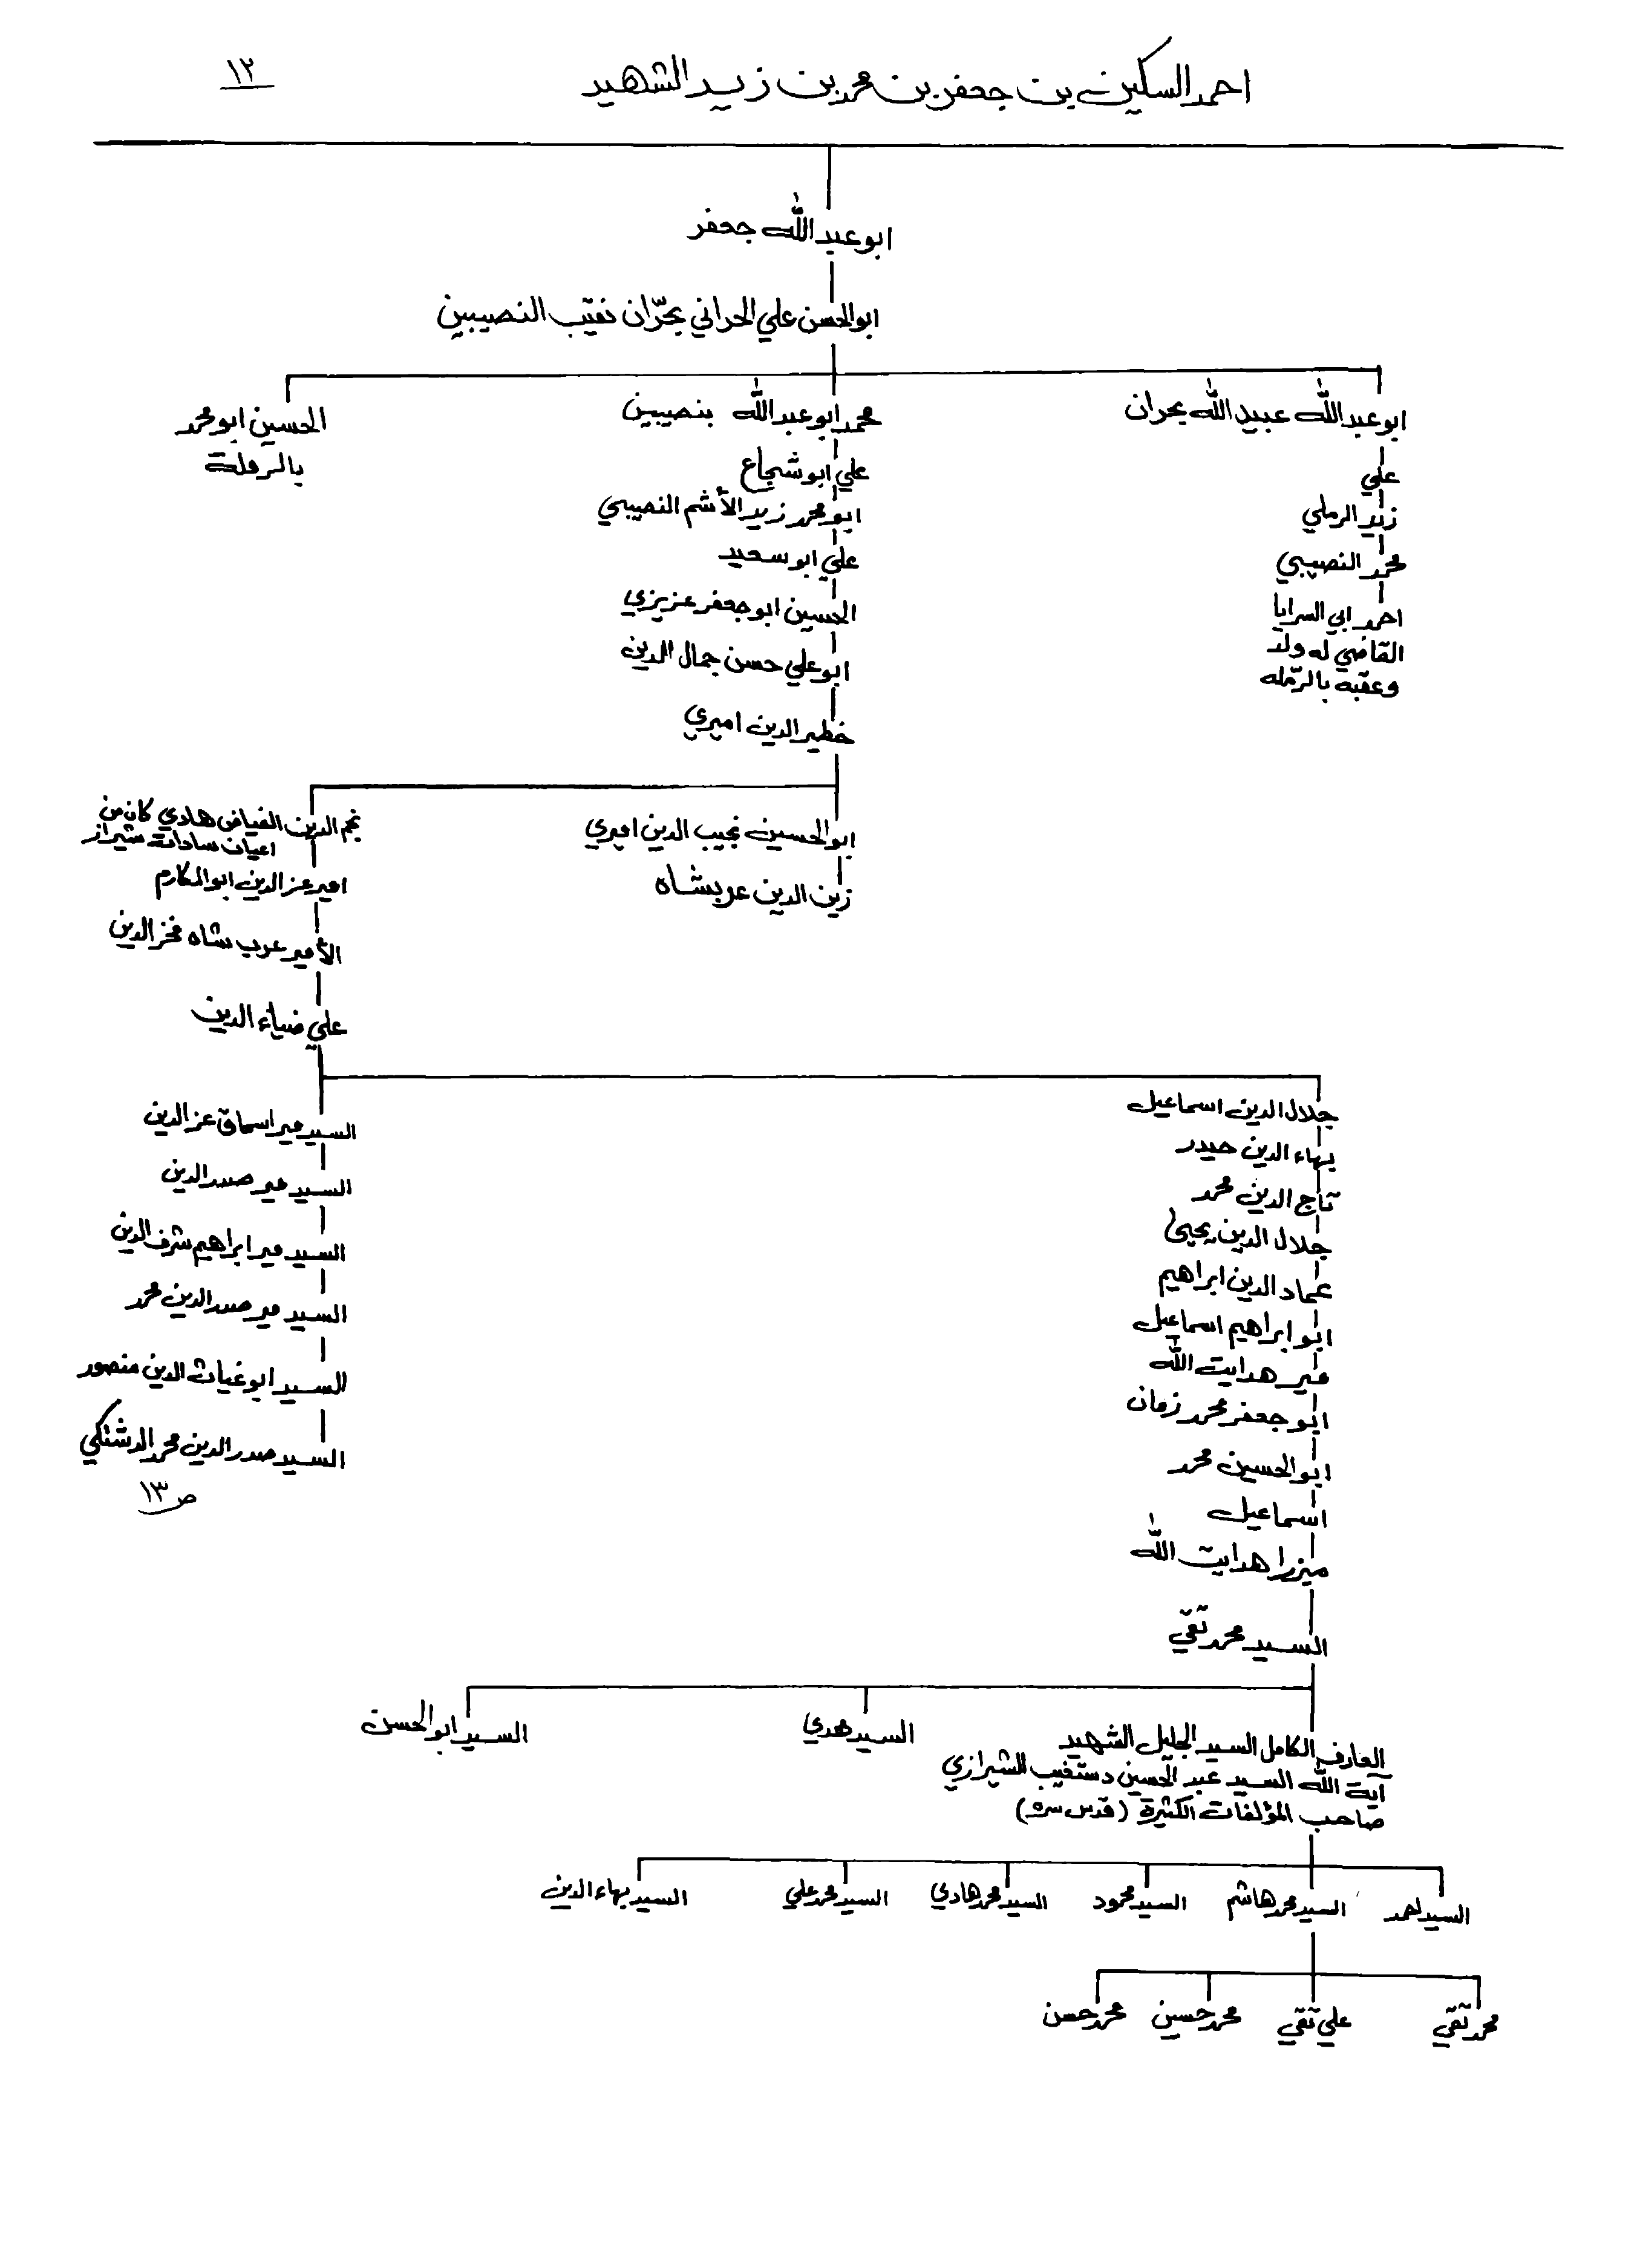 احمد السكين بن جعفر بن محمد بن زيد الشهيد
١٢
ابو عبد الله جعفر
ابو الحسن علي الحراني بحرّان نقيب النصيبين
ابو عبد الله عبيد الله بحران
علي
زيد الرملي
محمد النصيبي
احمد ابي السرايا
القاضي له ولد
وعقبه بالرمله
محمد ابو عبد الله بنصيبين
علي ابو شجاع
ابو محمد زيد الأشم النصيبي
علي ابو سعيد
الحسين ابو جعفر عزيزي
ابو علي حسن جمال الدين
خطير الدين اميري
الحسين ابو محمد
بالرملة
ابو الحسين نجيب الدين اميري
زين الدين عربشاه
نجم الدين الفياض هادي كان من
اعيان سادات شيراز
امير عز الدين ابو المكارم
الأمير عرب شاه فخر الدين
علي ضياء الدين
جلال الدين اسماعيل
بهاء الدين حيدر
تاج الدين محمد
جلال الدين يحيى
عماد الدين ابراهيم
ابو ابراهيم اسماعيل
مير هدايت الله
ابو جعفر محمد زمان
ابو الحسين محمد
اسماعيل
ميرزا هدايت الله
السيد محمد تقي
السيد مير اسماق عز الدين
السيد مير صدر الدين
السيد مير ابراهيم شرف الدين
السيد مير صدر الدين محمد
السيد ابو غياث الدين منصور
السيد صدر الدين محمد الدشتكي
ص ١٣
العارف الكامل السيد الجليل الشهيد
آية الله السيد عبد الحسين دستغيب الشيرازي
صاحب المؤلفات الكثيرة (قدس سره)
السيد مهدي
السيد ابو الحسن
السيد احمد
السيد محمد هاشم
السيد محمود
السيد محمد هادي
السيد محمد علي
السيد بهاء الدين
محمد تقي
علي تقي
محمد حسين
محمد حسن